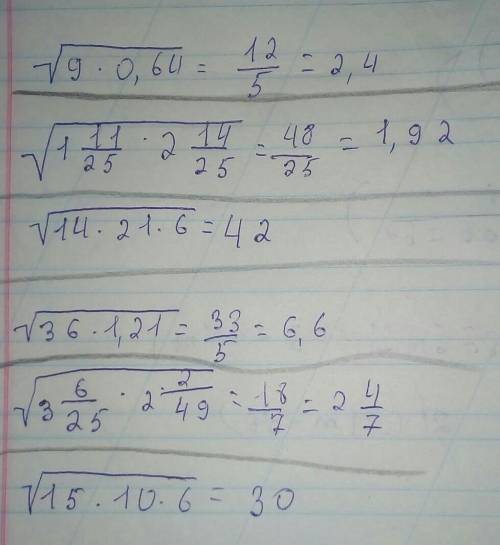 √9 · 0,64 = 12/5 = 2,4
√1 11/25 · 2 14/25 = 48/25 = 1,92
√14 · 21 · 6 = 42
√36 · 1,21 = 33/5 = 6,6
√3 6/25 · 2 · 2/49 = 18/7 = 2 4/7
√15 · 10 · 6 = 30